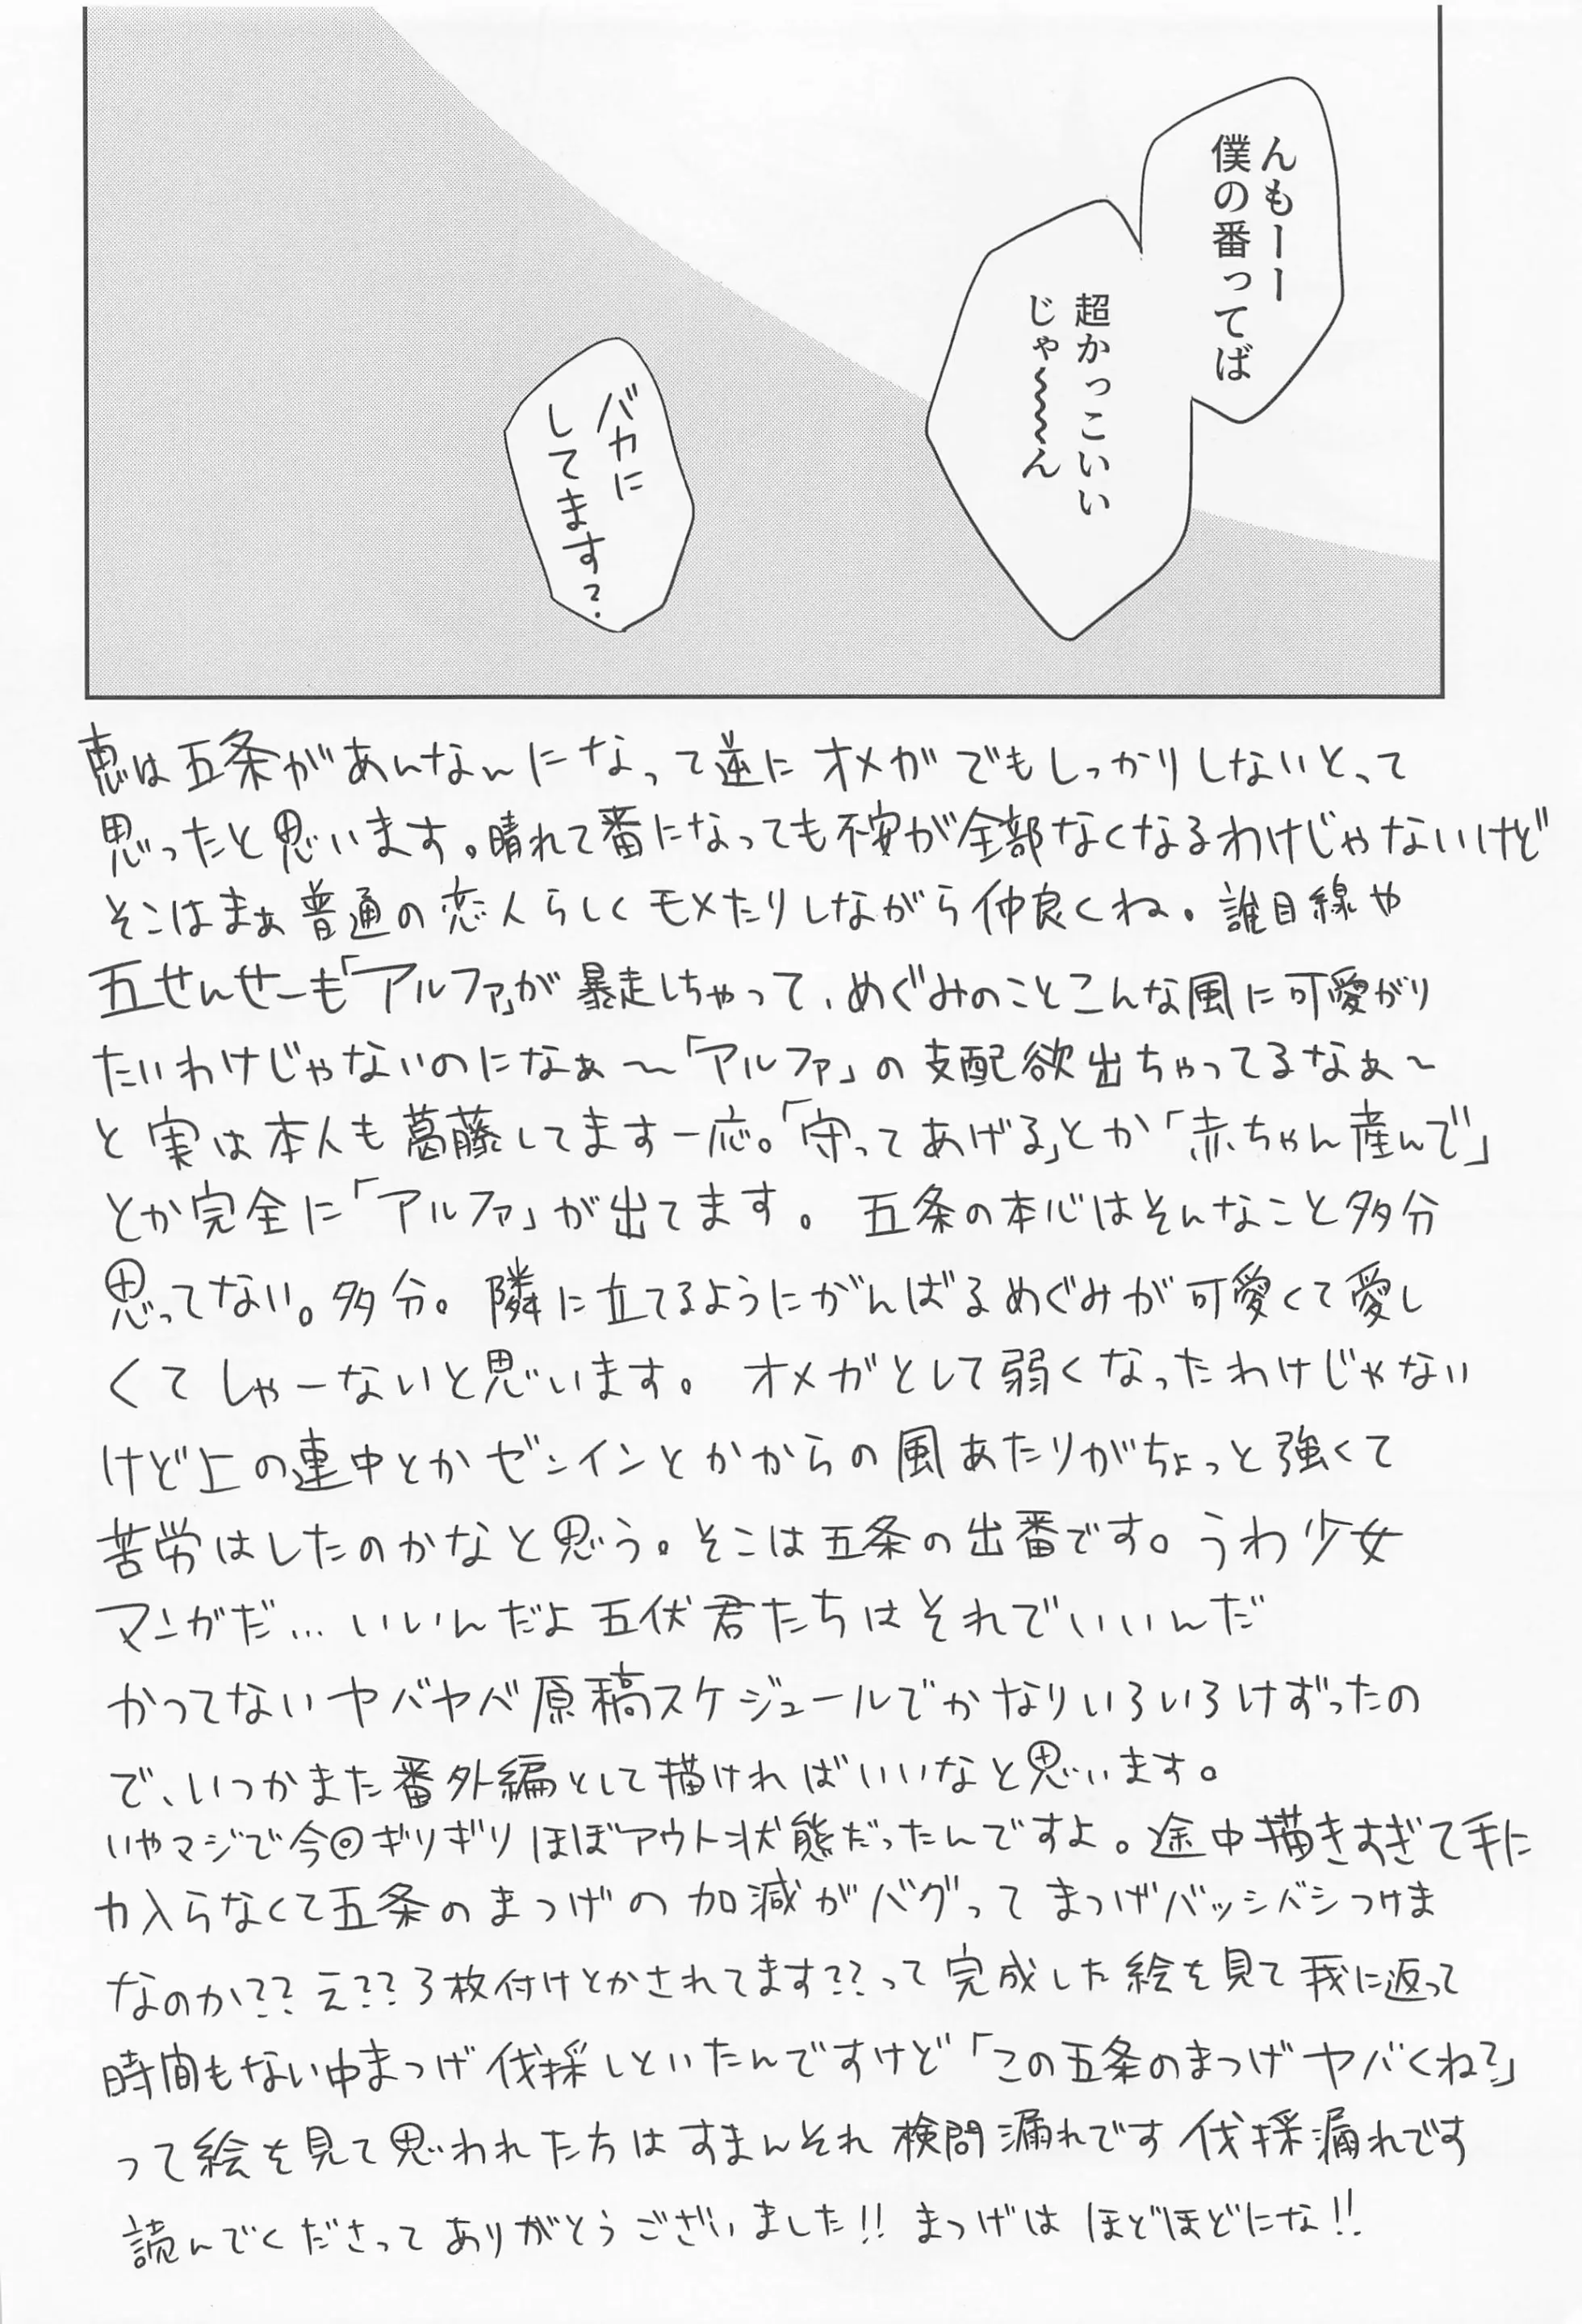 んもーー
僕の番ってば
超かっこいい
じゃ〜〜〜ん
バカに
してます?
恵は五条があんなんになって逆にオメガでもしっかりしないとって
思ったと思います。晴れて番になっても不安が全部なくなるわけじゃないけど
そこはまぁ普通の恋人らしくモメたりしながら仲良くね。誰目線や
五せんせーも「アルファ」が暴走しちゃって、めぐみのことこんな風に可愛がり
たいわけじゃないのになぁ〜「アルファ」の支配欲出ちゃってるなぁ〜
と実は本人も葛藤してます一応。「守ってあげる」とか「赤ちゃん産んで」
とか完全に「アルファ」が出てます。五条の本心はそんなこと多分
思ってない。多分。隣に立てるようにがんばるめぐみが可愛くて愛し
くてしゃーないと思います。オメガとして弱くなったわけじゃない
けど上の連中とかゼンインとかからの風あたりがちょっと強くて
苦労はしたのかなと思う。そこは五条の出番です。うわ少女
マンガだ…いいんだよ五伏君たちはそれでいいんだ
かつてないヤバヤベ原稿スケジュールでかなりいろいろけずったの
で、いつかまた番外編として描ければいいなと思います。
いやマジで今回ギリギリほぼアウト状態だったんですよ。途中描きすぎて手に
力入らなくて五条のまつげの加減がバグってまつげバッシバシつけま
なのか??え??3枚付けとかされてます??って完成した絵を見て我に返って
時間もない中まつげ伐採しといたんですけど「この五条のまつげヤバくね?」
って絵を見て思われた方はすまんそれ検問漏れです伐採漏れです
読んでくださってありがとうございました!!まつげはほどほどにな!!